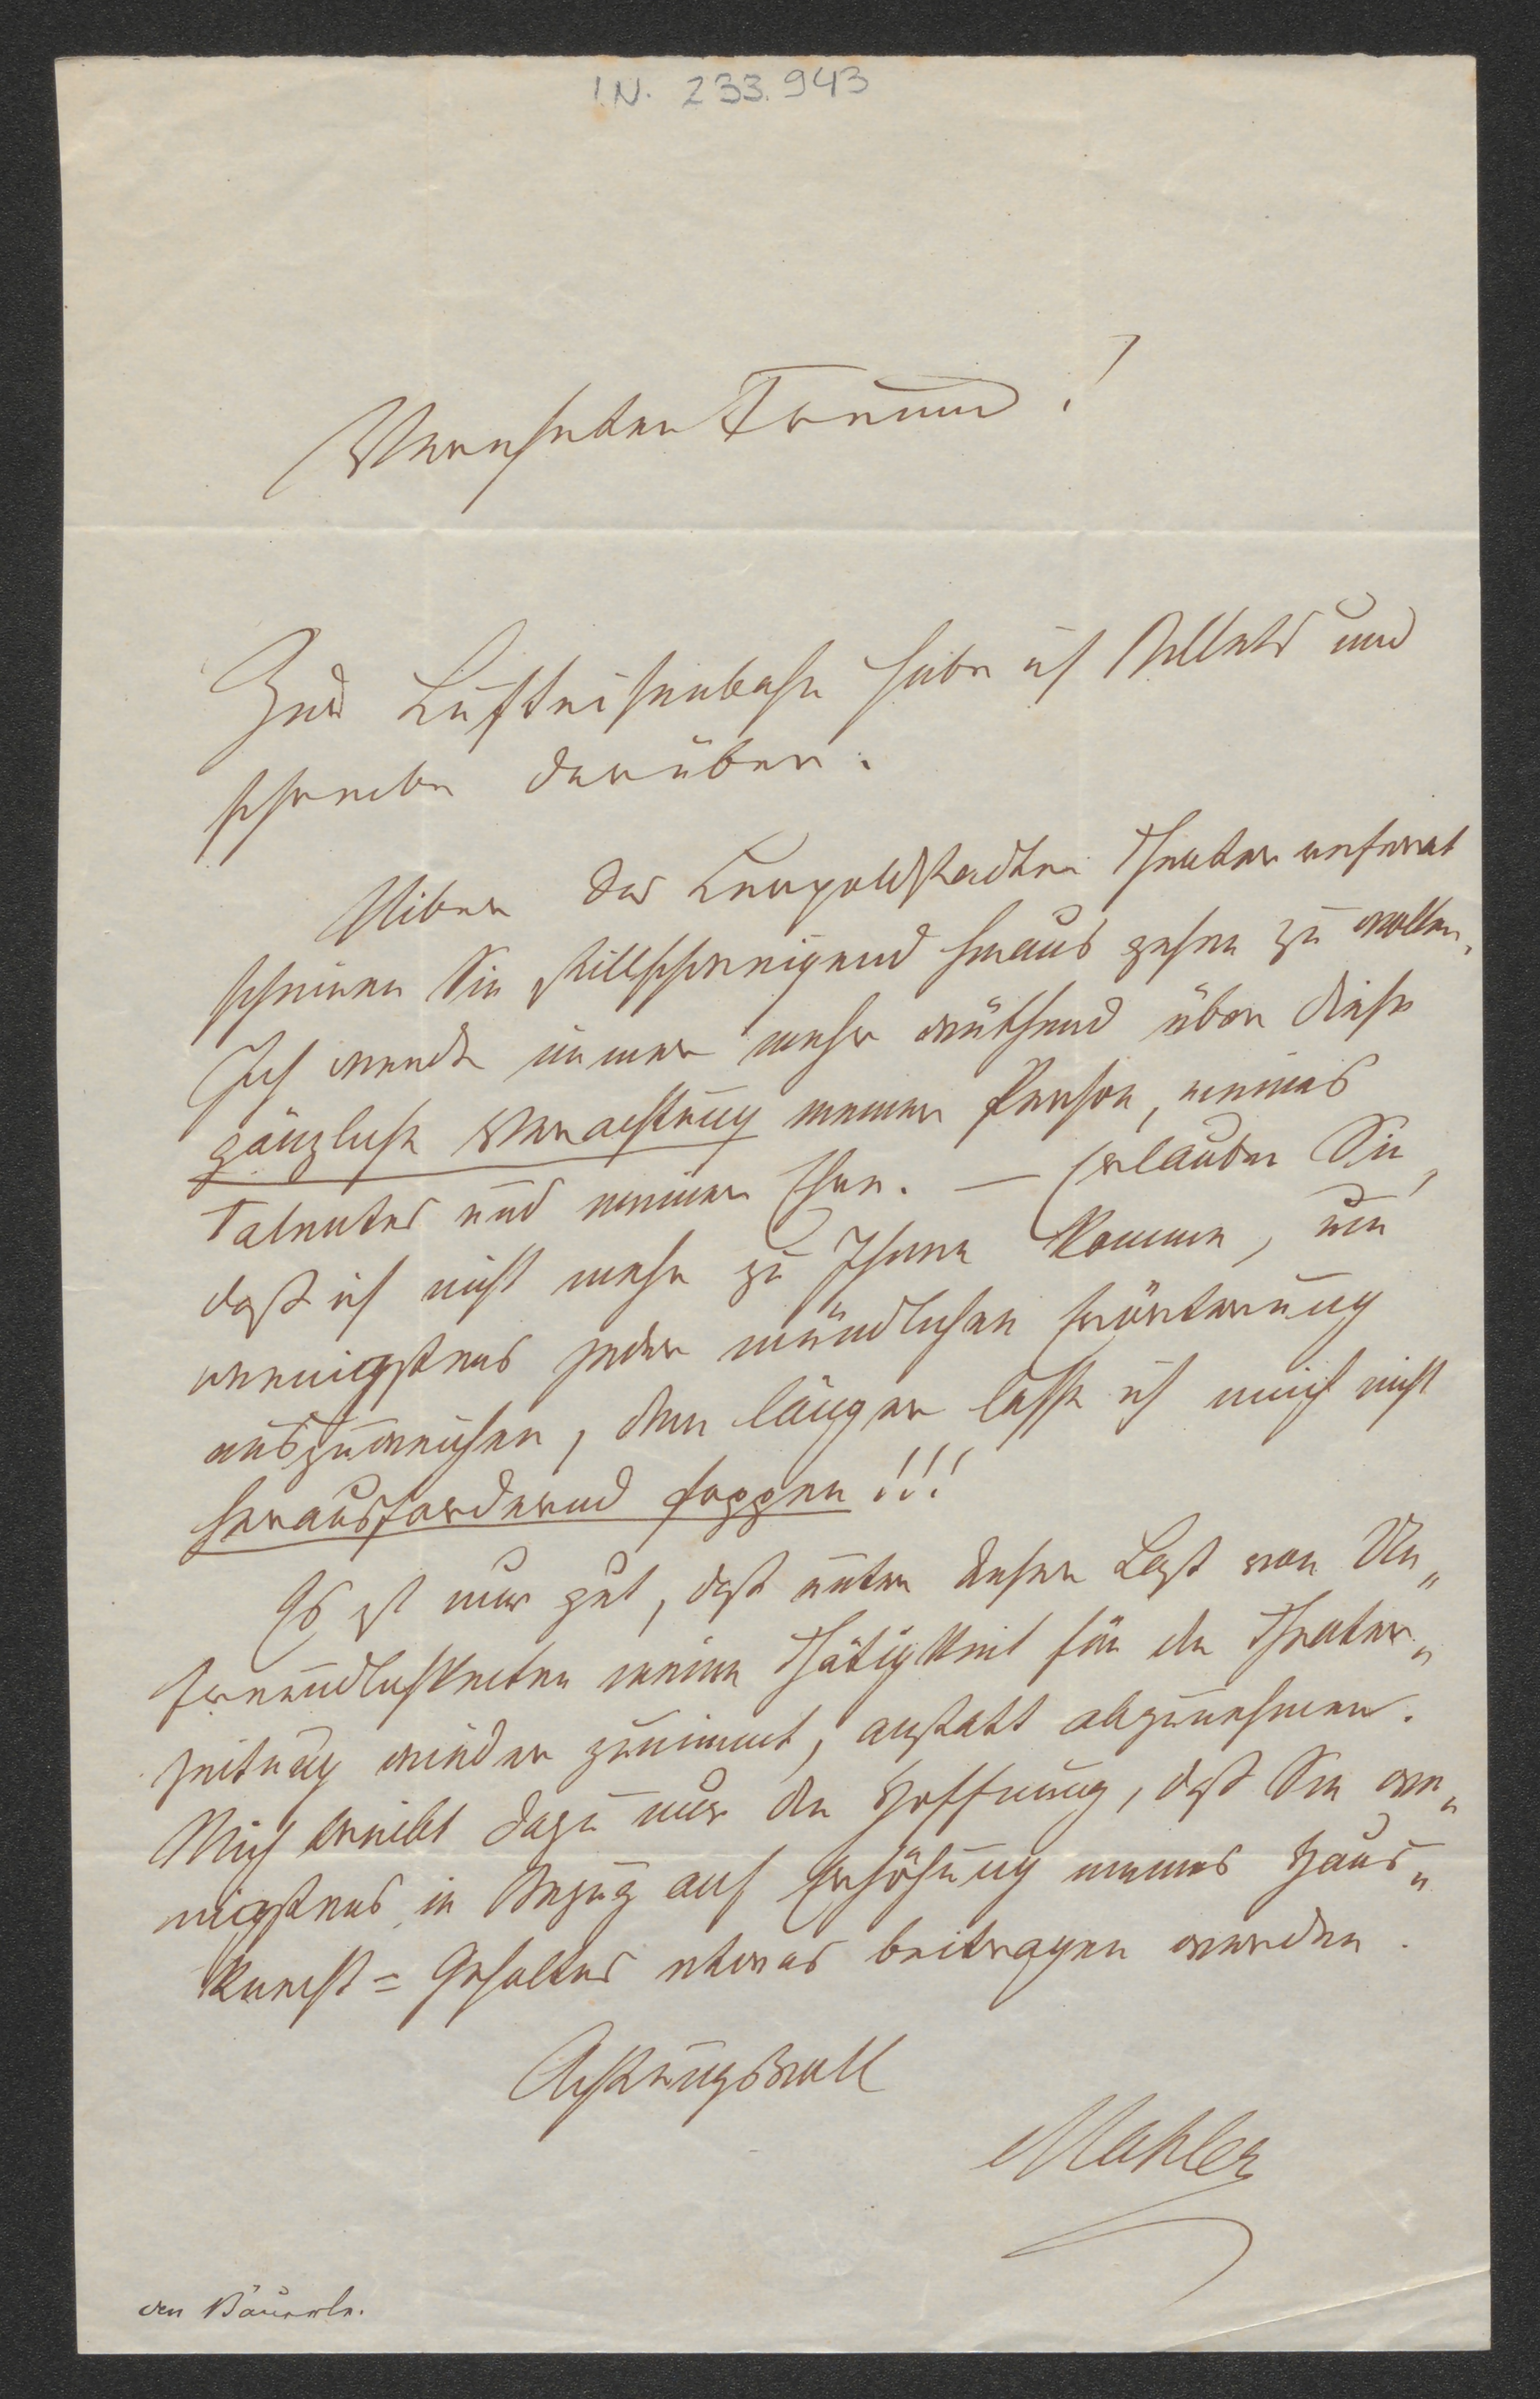 I.N. 233.943
Verehrter Freund!
Zur Lufteisenbahn habe ich Billets und
schreibe darüber.
Über das Leopoldstädter Theaterreferat
scheinen Sie stillschweigend hinaus gehen zu wollen.
Ich werde immer mehr wüthend über diese
gänzliche Verachtung meiner Person, meines
Talentes und meiner Ehre. — Erlauben Sie,
daß ich nicht mehr zu Ihnen komme, um
wenigstens jeder mündlichen Erörterung
auszuweichen, denn länger lasse ich mich nicht
herausfordernd foppen!!!
Es ist nur gut, daß unter dieser Last von Un„
freundlichkeiten meine Thätigkeit für die Theater„
zeitung wieder zunimmt, anstatt abzunehmen.
Mich treibt dazu nur die Hoffnung, daß Sie we„
nigstens in Bezug auf Erhöhung meines Haus„
kunst = Gehaltes etwas beitragen werden.
Achtungsvoll
Mahler
an Bäuerle.